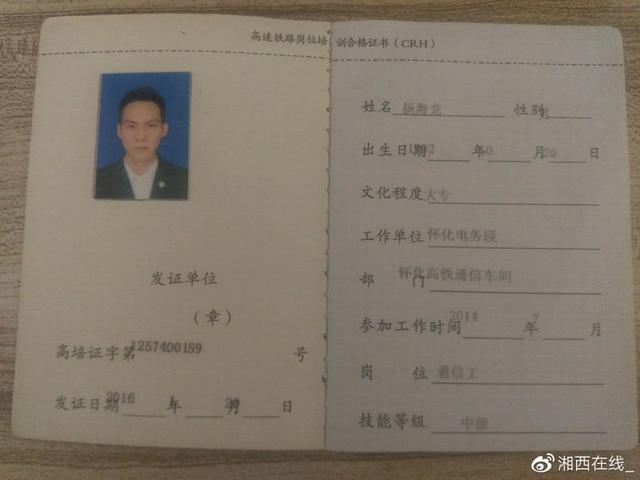 高速铁路岗位培训合格证书(CRH)
发证单位
(章)
高培证字第1257400159号
发证日期2016年1月20日
姓名 杨海龙 性别
出生日期 年 月20日
文化程度大专
工作单位怀化电务段
部门怀化高铁通信车间
参加工作时间2014年7月
岗位 通信工
技能等级 中级
湘西在线_